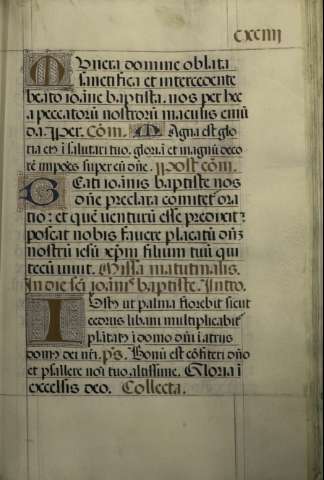 cxciiij
Munera domine oblata
sanctifica et intercedente
beato ioāne baptista. nos per hec
a peccatorū nostrorū maculis emū
da. Per. Cōm̄. Magna est glo
ria eius ī salutari tuo. gloriā et magnū deco
rē impōes super eū dn̄e. Post cōm̄.
Beati ioānis baptiste nos
dn̄e preclara comitet̄ ora
tio: et quē venturū esse predixit:
poscat nobis fauere placatū dn̄m
nostrū iesū xp̄m filium tuū qui
tecū uiuit. Missa matutinalis.
In die scī ioānis baptiste. Intro.
Iustus ut palma florebit sicut
cedrus libani multiplicabit̄
plātatus ī domo dn̄i ī atriis
domus dei nr̄i. p̄s. Bonū est cōfiteri dn̄o
et psallere noī tuo altissime. Gloria ī
excelsis deo. Collecta.